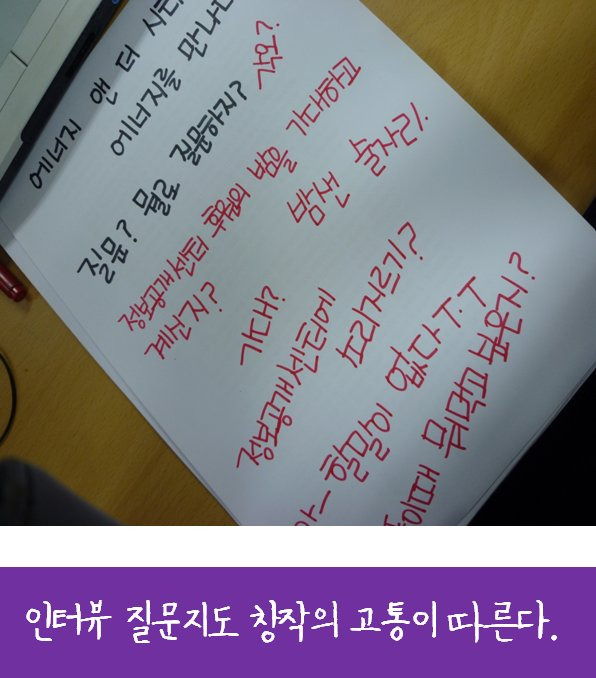 에너지 앤 더 시티
에너지를 만나다
질문? 뭘로 질문하지? 각오?
정보공개센터 후원의 밤을 기대하고
계신지? 밤샌 술자리!
기대?
정보공개센터에
프리저르기?
아- 할말이 없다T.T
뭐먹고 싶은지?
인터뷰 질문지도 창작의 고통이 따른다.